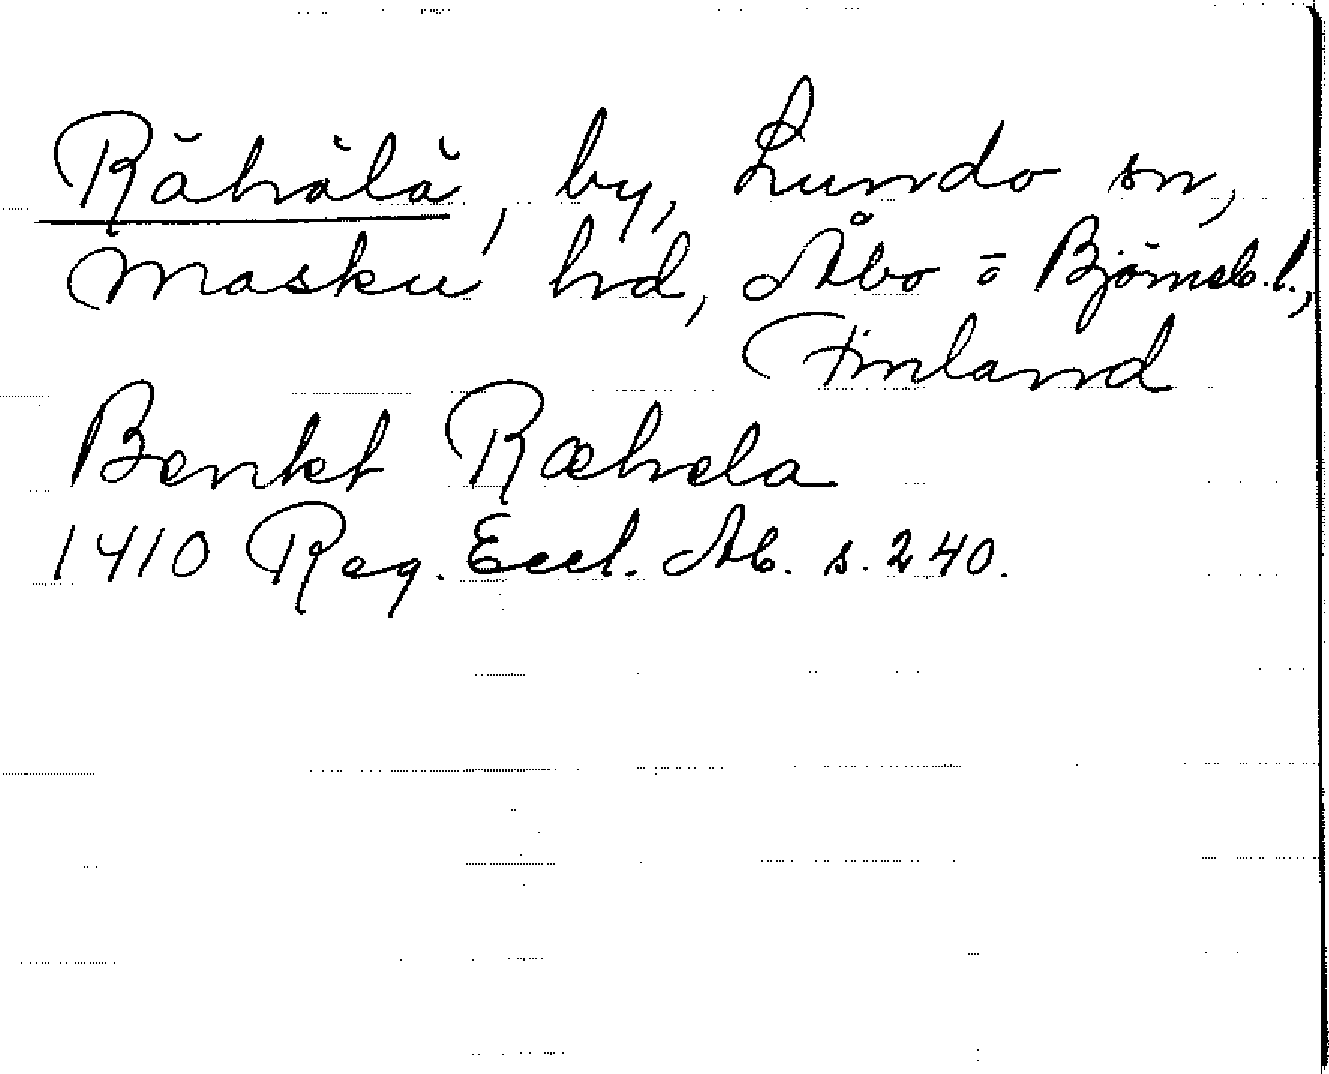 Rähälä, by, Lundo sn,
Masku hd, Åbo o Björneb. l.,
Finland
Benkt Ræhela
1410 Reg. Eccl. Ab. s. 240.